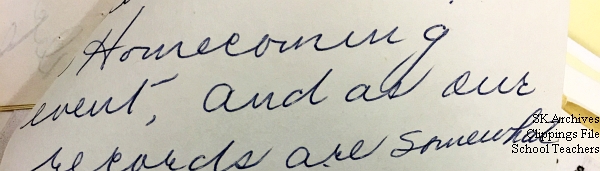 Homecoming
event, and as our
records are somewhat
SK Archives
Clippings File
School Teachers